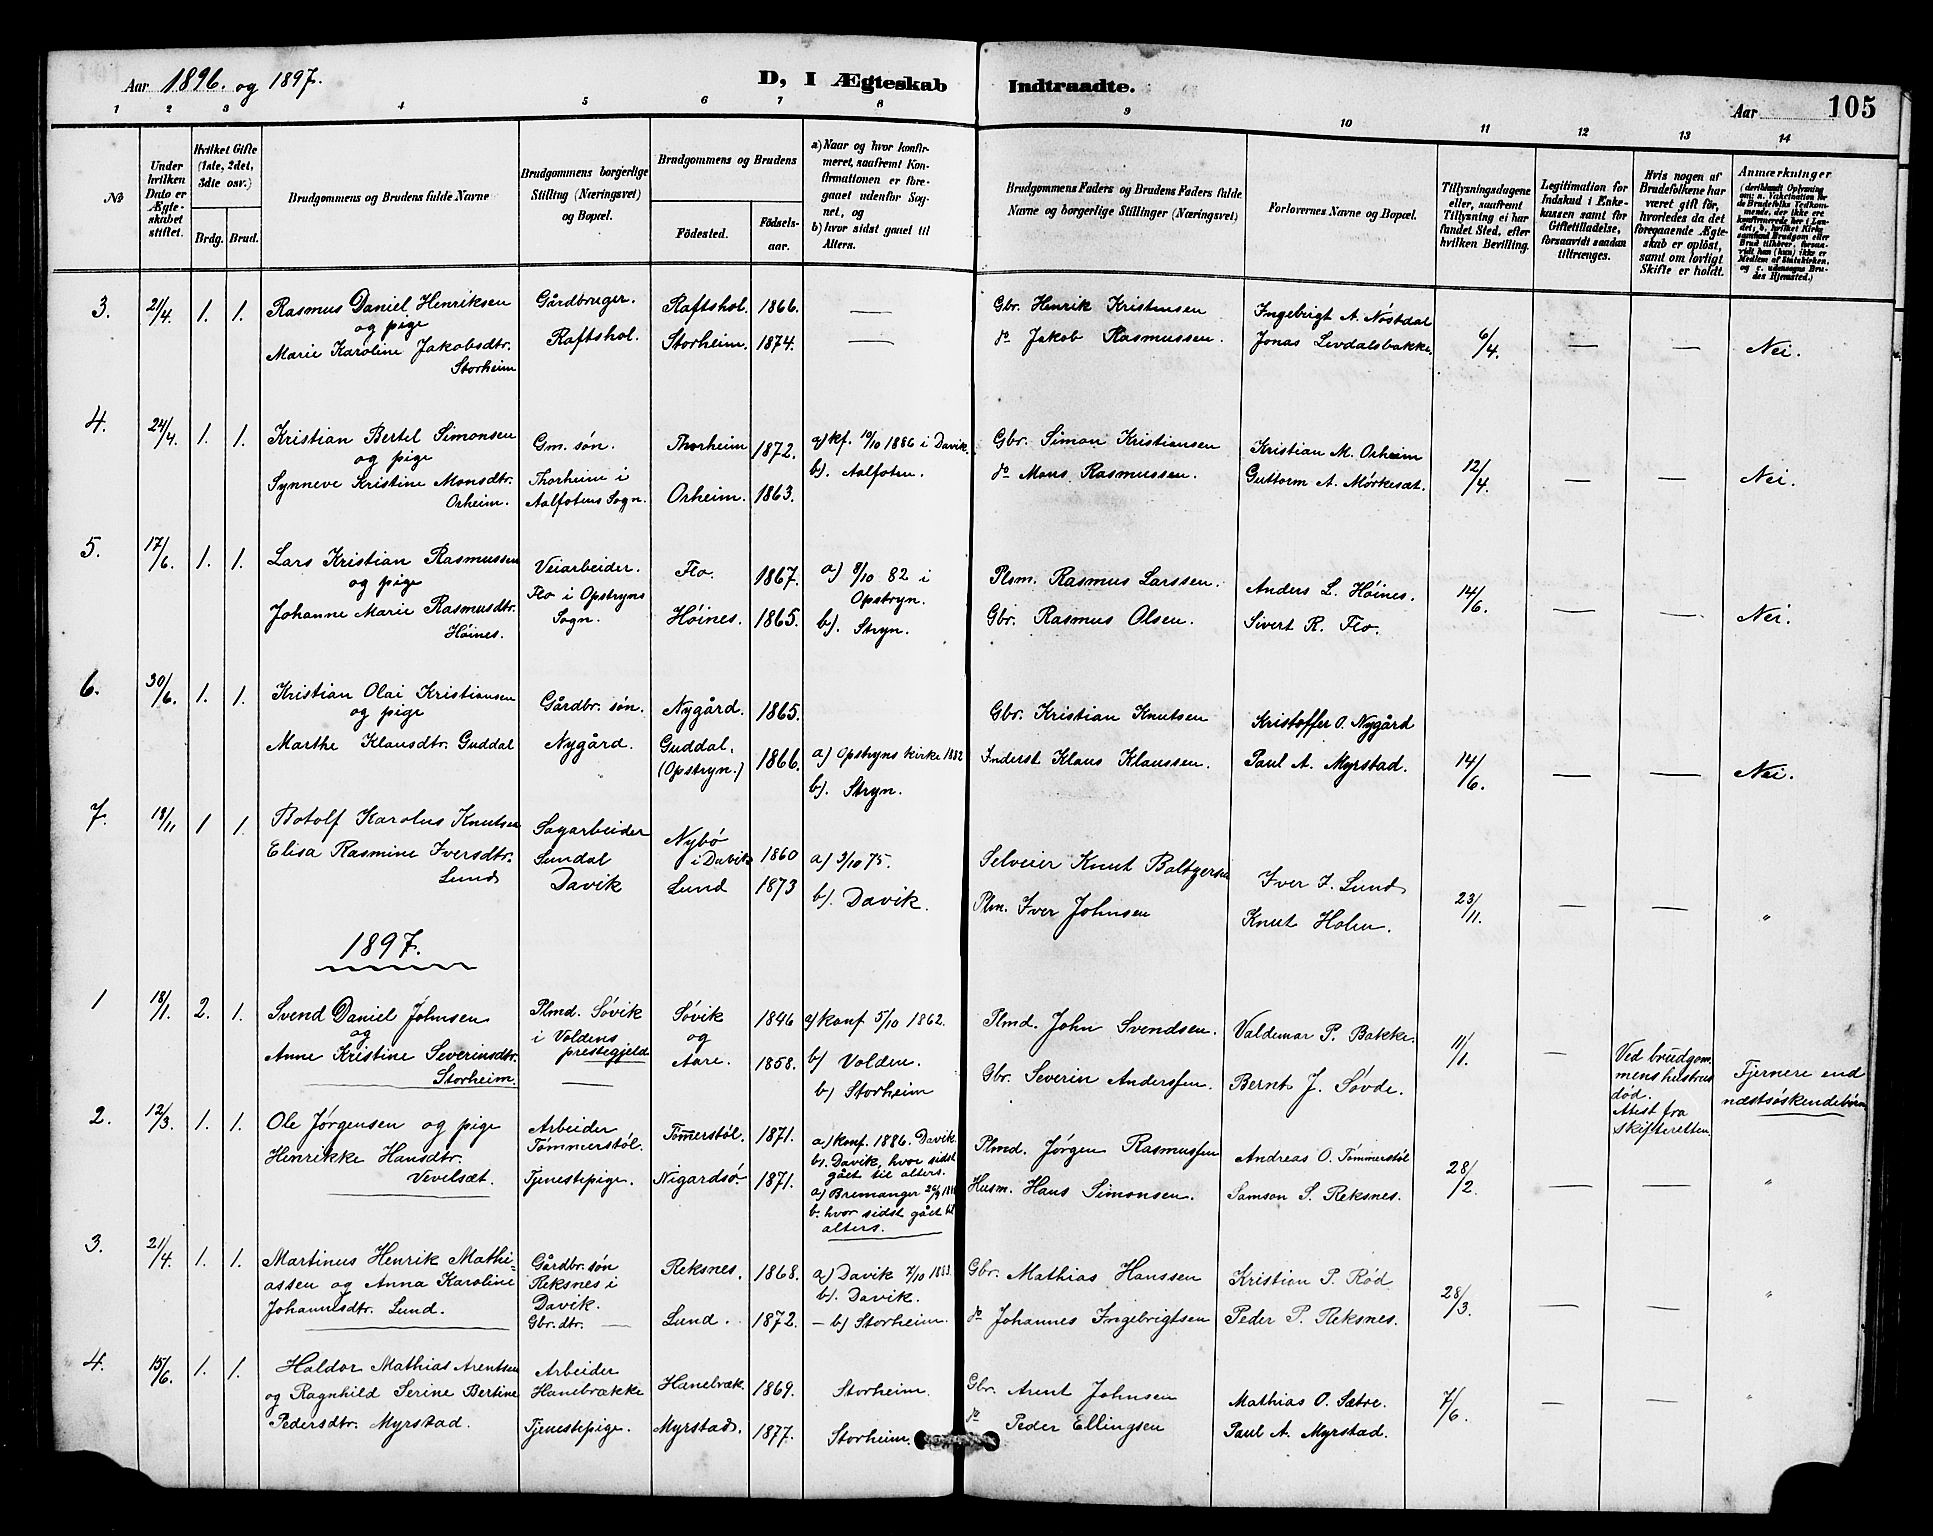 Aar 1896. og 1897.
D, I Ægteskab Indtraadte.
Aar 105
1 2 3 4 5 6 7 8 9 10 11 12 13 14
No
Under hvilken Dato er Ægteskabet stiftet.
Hvilket Gifte (1ste, 2det, 3dte osv.)
Brdg. Brud.
Brudgommens og Brudens fulde Navne
Brudgommens borgerlige Stilling (Næringsvei) og Bopæl.
Brudgommens og Brudens
Fødested.
Fødselsaar.
a) Naar og hvor konfirmeret, saafremt Konfirmationen er foregaaet udenfor Sognet, og
b) hvor sidst gaaet til Alters.
Brudgommens Faders og Brudens Faders fulde Navne og borgerlige Stillinger (Næringsvei)
Forlovernes Navne og Bopæl.
Tillysningsdagene eller, saafremt Tillysning ei har fundet Sted, efter hvilken Bevilling.
Legitimation for Indskud i Enkekassen samt for Giftetilladelse, forsaavidt saadan tiltrænges.
Hvis nogen af Brudefolkene har været gift før, hvorledes da det foregaaende Ægteskab er opløst, samt om lovligt Skifte er holdt.
Anmærkninger
3. 21/4. 1. 1. Rasmus Daniel Henriksen Gårdbruger. Raftshol. 1866. — Gbr. Henrik Kristensen Ingebrigt A. Nøstdal
og pige
Marie Karoline Jakobsdtr. Raftshol. Storheim. 1874. — do Jakob Rasmussen. Jonas Levdalsbakke. 6/4. — — Nei.
Storheim
4. 24/4. 1. 1. Kristian Bertel Simonsen Gm. søn. Thorheim 1872. a) kf. 10/10 1886 i Davik. Gbr. Simon Kristiansen Kristian M. Orheim
og pige
Synneve Kristine Monsdtr. Thorheim i Orheim. 1863. b). Aalfoten. do Mons Rasmussen. Guttorm A. Mørkesæt. 12/4. — — Nei.
Orheim. Aalfotens Sogn.
5. 17/6. 1. 1. Lars Kristian Rasmussen Veiarbeider. Flo. 1867. a) 8/10 82 i Plsm. Rasmus Larssen. Anders L. Høines.
og pige Flo i Opstryns Opstryn.
Johanne Marie Rasmusdtr. Sogn. Høines. 1865. b). Stryn. Gbr. Rasmus Olsen. Sivert R. Flo. 14/6. — — Nei.
Høines.
6. 30/6. 1. 1. Kristian Olai Kristiansen Gårdbr. søn. Nygård. 1865. Gbr. Kristian Knutsen Kristoffer O. Nygård
og pige
Marthe Klausdtr. Guddal Nygård. Guddal. (Opstryn.) 1866. a) Opstryns kirke 1882 Inderst Klaus Klaussen. Paul A. Myrstad. 14/6. — — Nei.
b). Stryn.
7. 18/11 1 1. Botolf Karolus Knutsen Sagarbeider Nybø i Davik 1860 a) 3/10 75. Selveier Knut Baltzersen Iver I. Lund
Elisa Rasmine Iversdtr. Lundal
Lund Davik Lund 1873 b). Davik. Plm. Iver Johnsen Knut Holen. 23/11. — — "
1897.
1 18/1. 2. 1. Svend Daniel Johnsen Plmd. Søvik Søvik 1846 a) konf 5/10 1862. Plmd. John Svendsen. Valdemar P. Bakke.
og i Voldens prestegjeld og b) Volden.
Anne Kristine Severinsdtr. — Aare. 1858. b) Storheim Gbr. Severin Anderssen. Bernt J. Søvde. 11/1. — Ved brudgommens hustrus død. Attest fra skifteretten. Fjernere end næstsøskendebørn
Storheim.
2. 12/3. 1. 1. Ole Jørgensen og pige Arbeider Tømmerstøl. 1871. a) konf. 1886. Davik. Plmd. Jørgen Rasmussen Andreas O. Tømmerstøl
Henrikke Hansdtr. Tømmerstøl. b). Davik, hvor sidst gået til alters.
Vevelsæt. Tjenestepige. Nigardsø. 1871. a) Bremanger Husm. Hans Simonsen. Samson S. Reksnes. 28/2. — — "
b. hvor sidst gået til alters.
3. 21/4. 1. 1. Martinus Henrik Mathi= Gårdbr. søn Reksnes. 1868. a) Davik 7/10 1883. Gbr. Mathias Hanssen Kristian P. Rød
assen og Anna Karoline Reksnes i b). Davik.
Johannesdtr. Lund. Davik. Lund. 1872. — b) Storheim. do Johannes Ingebrigtsen Peder P. Reksnes. 28/3. — — "
Gbr. dtr. —
4. 15/6. 1. 1. Haldor Mathias Arentsen Arbeider
og Ragnhild Serine Bertine Hanebrække Hanebræk. 1869. Storheim. Gbr. Arent Johnsen Mathias O. Sætre. 7/6. — — "
Pedersdtr. Myrstad. Tjenestepige. Myrstad. 1877. Storheim. do Peder Ellingsen Paul A. Myrstad.